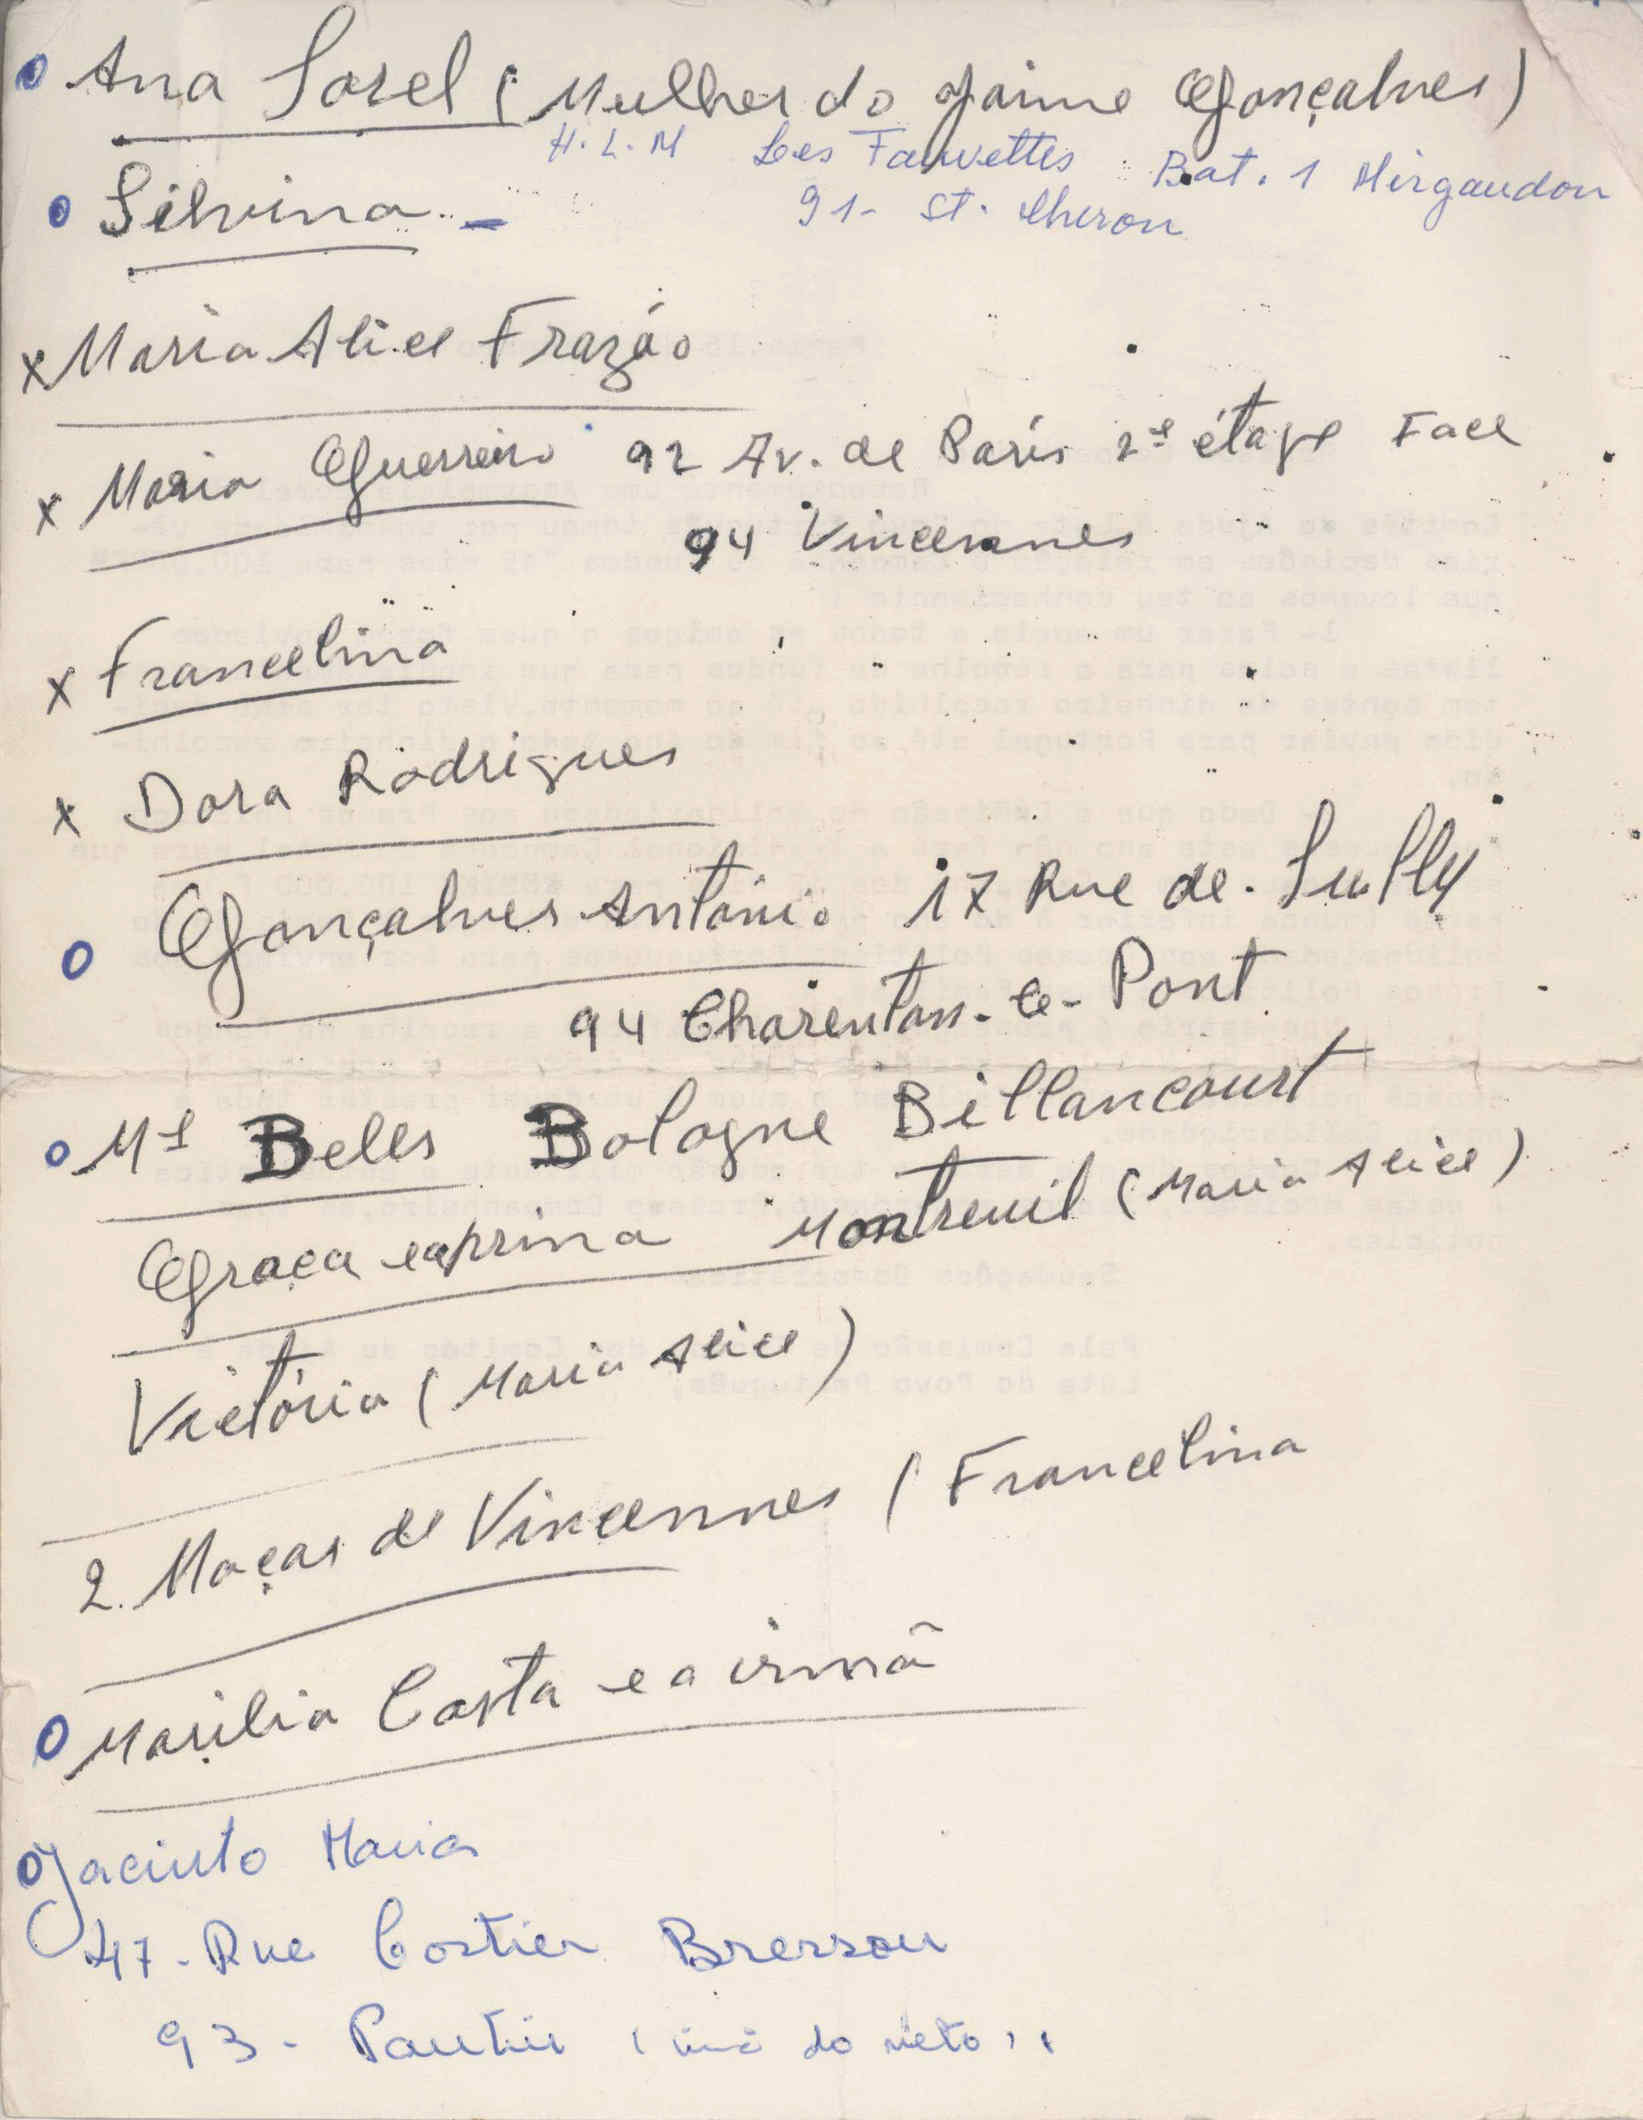 Ana Sorel (Mulher do Jaime Gonçalves)
H.L.M Les Fauvettes Bat. 1 Mirgaudon
91- St. Cheron
Silvina -
x Maria Alice Frazão
x Maria Guerreiro 92 Av. de Paris 2e étage Face
94 Vincennes
x Francelina
x Dora Rodrigues
Gonçalves António 17 Rue de Sully
94 Charenton-le-Pont
Bologne Billancourt
Graça e a prima Montreuil (Maria Alice)
Victória (Maria Alice)
2 Moças de Vincennes (Francelina
Marilia Costa e a irmã
Jacinto Maria
47 - Rue Cartier Bresson
93 - Pantin ( do neto )